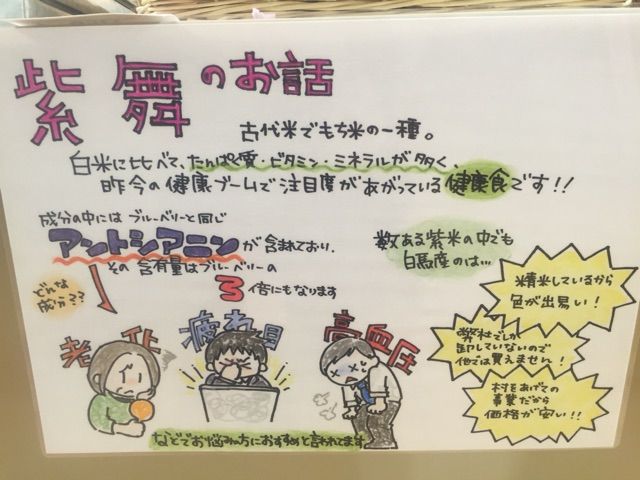 紫舞のお話
古代米でもち米の一種。
白米に比べて、たんぱく質・ビタミン・ミネラルが多く、
昨今の健康ブームで注目度があがっている健康食です!!
成分の中には ブルーベリーと同じ
アントシアニンが含まれており、
その含有量はブルーベリーの
3倍にもなります
どんな
成分??
老化
疲れ目
高血圧
などでお悩みの方におすすめと言われてます
数ある紫米の中でも
白馬産のは…
精米しているから
色が出易い!
弊社でしか
卸していないので
他では買えません!
村をあげての
事業だから
価格が安い!!